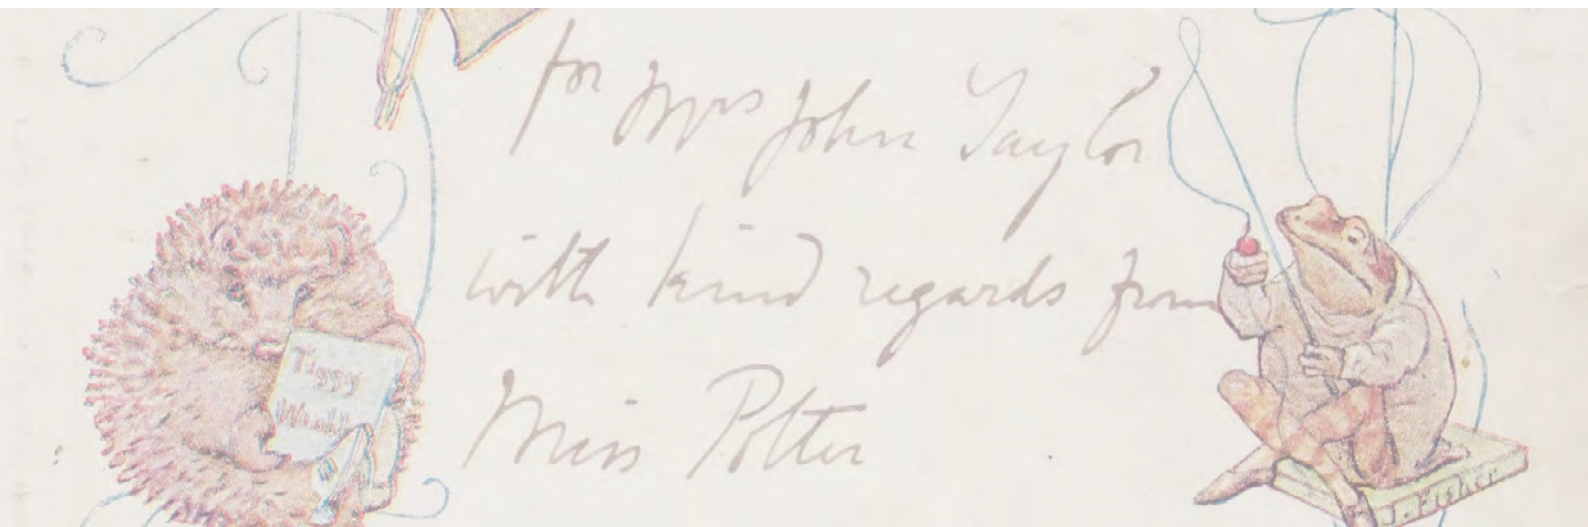 for Mrs John Taylor
with kind regards from
Miss Potter
Tiggy
Winkle
J. Fisher